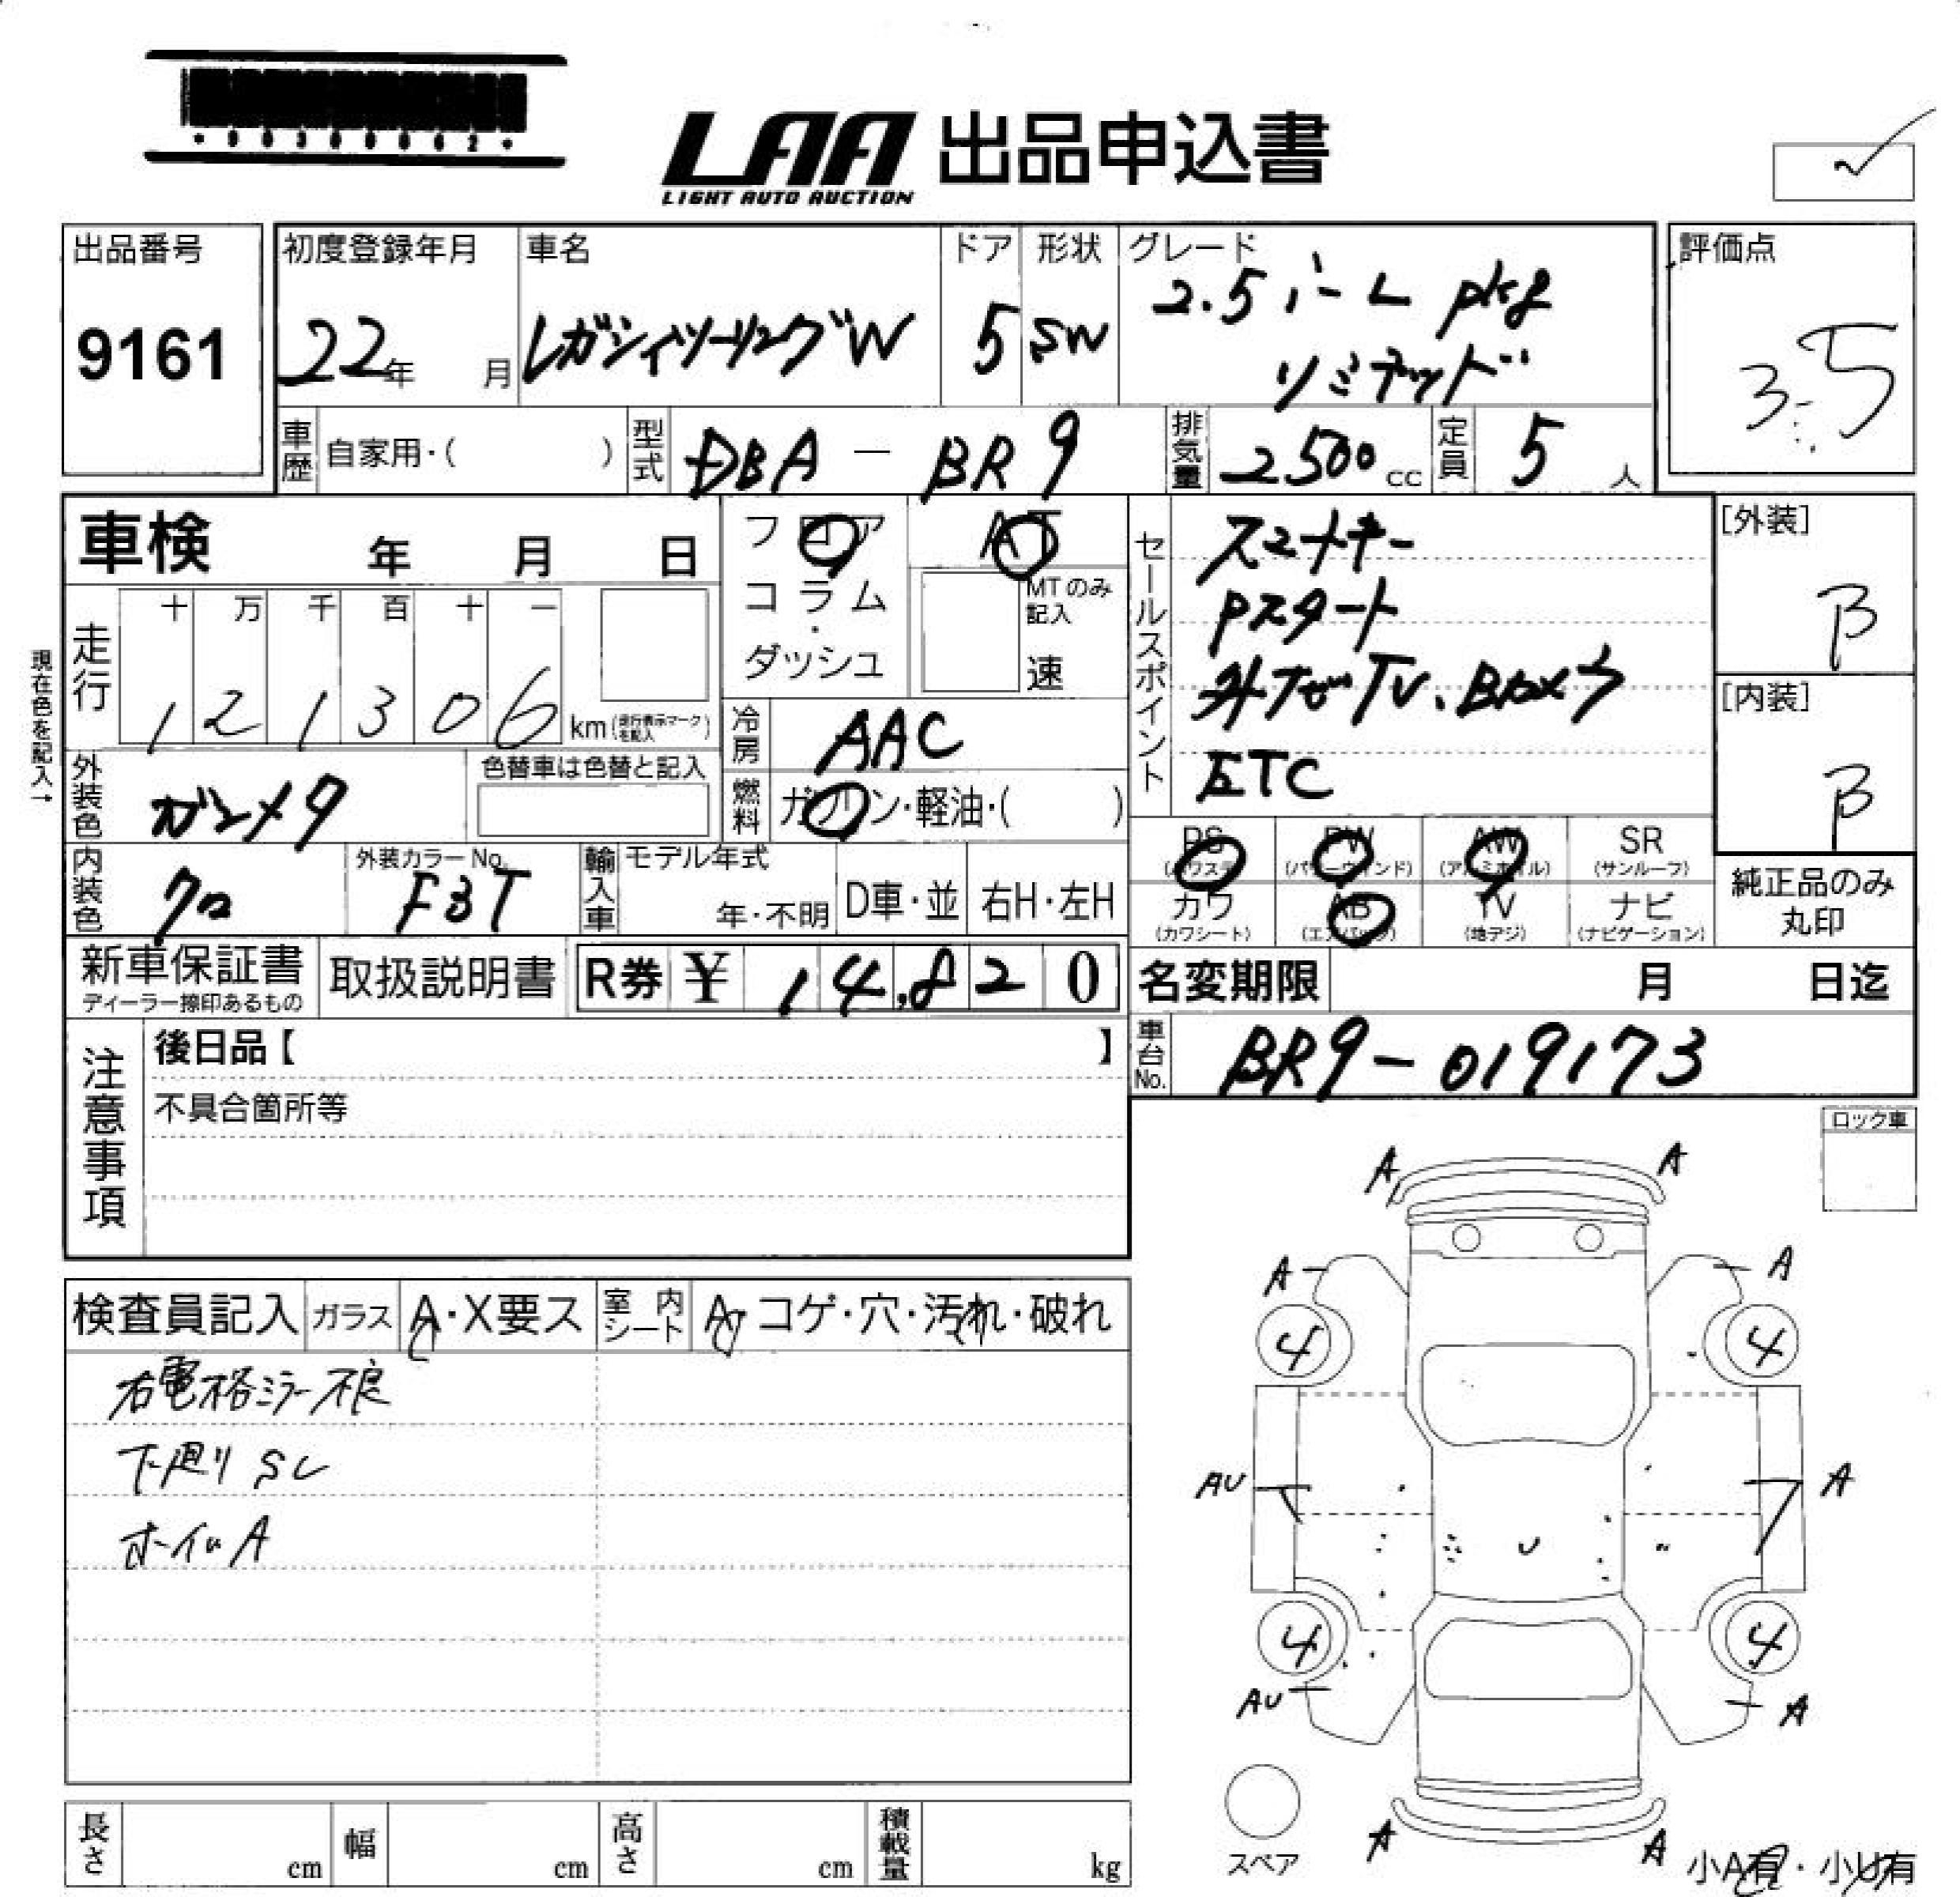 *90300062*
LAA 出品申込書
LIGHT AUTO AUCTION
出品番号
9161
初度登録年月
22年 月
車名
レガシィツーリングW
ドア
5
形状
SW
グレード
2.5 i-L pkg
リミテッド
評価点
3.5
車歴 自家用・( )
型式 DBA-BR9
排気量 2500cc
定員 5人
車検 年 月 日
フロア
コラム・
ダッシュ
AT
MTのみ
記入
速
セールスポイント
スマートキー
Pスタート
外ナビTV、Bカメラ
ETC
[外装]
B
[内装]
B
現在色を記入→
走行
十 万 千 百 十 一
1 2 1 3 0 6 km (走行表示マークを記入)
冷房 AAC
外装色 ガンメタ
色替車は色替と記入
燃料 ガソリン・軽油・( )
PS PW AW SR
(パワステ) (パワーウィンド) (アルミホイル) (サンルーフ)
カワ AB TV ナビ
(カワシート) (エアバッグ) (地デジ) (ナビゲーション)
純正品のみ
丸印
内装色 クロ
外装カラーNo.
F3T
輸入車
モデル年式
年・不明
D車・並
右H・左H
新車保証書
ディーラー捺印あるもの
取扱説明書
R券 ¥ 14,820
名変期限 月 日迄
車台No. BR9-019173
注意事項
後日品【 】
不具合箇所等
ロック車
検査員記入
ガラス A・X要ス
室内シート A・コゲ・穴・汚れ・破れ
右電格ミラー不良
下廻りSL
ホイルA
A A
A A
4 4
AU A
4 4
AU A
A A
スペア
小A有・小U有
長さ cm
幅 cm
高さ cm
積載量 kg